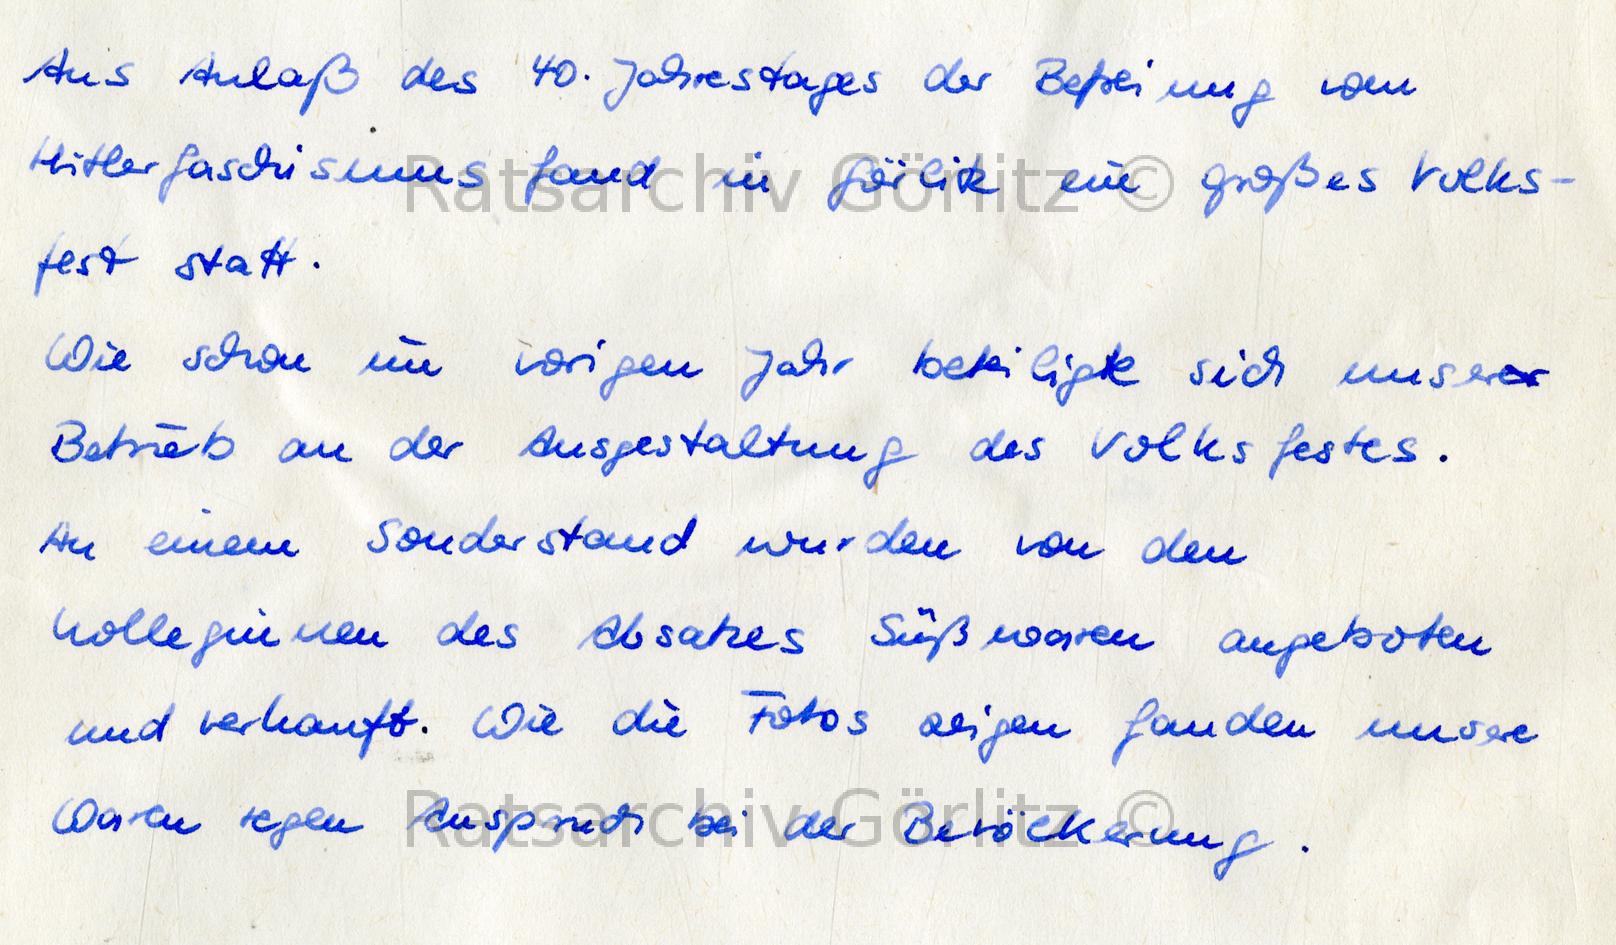 Aus Anlaß des 40. Jahrestages der Befreiung vom
Hitlerfaschismus fand in Görlitz ein großes Volks-
fest statt.
Wie schon im vorigen Jahr beteiligte sich unser
Betrieb an der Ausgestaltung des Volksfestes.
An einem Sonderstand wurden von den
Kolleginnen des Absatzes Süßwaren angeboten
und verkauft. Wie die Fotos zeigen fanden unsere
Waren regen Anspruch bei der Bevölkerung.
Ratsarchiv Görlitz ©
Ratsarchiv Görlitz ©